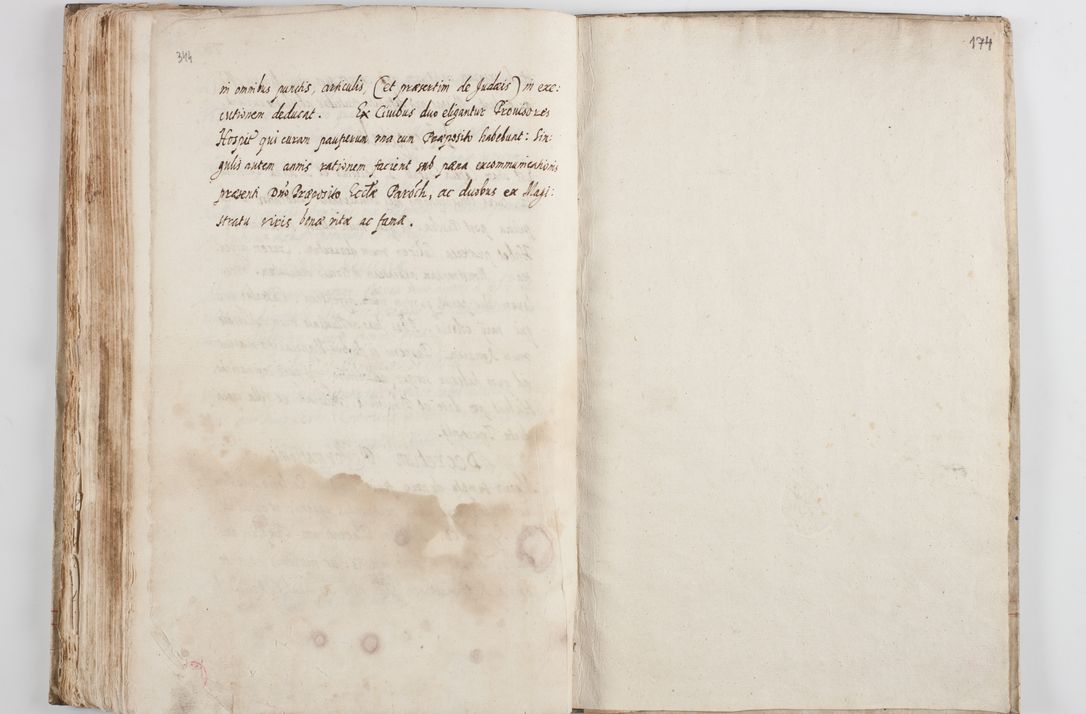 344
in omnibus punctis, articulis, (et præsertim de Judæis) in exe:
cutionem deducat. Ex Civibus duo eligantur Provisores
Hospit. qui curam pauperum una cum Præposito habebunt: Sin:
gulis autem annis rationem facient sub pæna excommunicationis
præsenti Dno Præposito Ecclæ Paroch, ac duobus ex Magi:
stratu viris bonæ vitæ ac famæ.
174